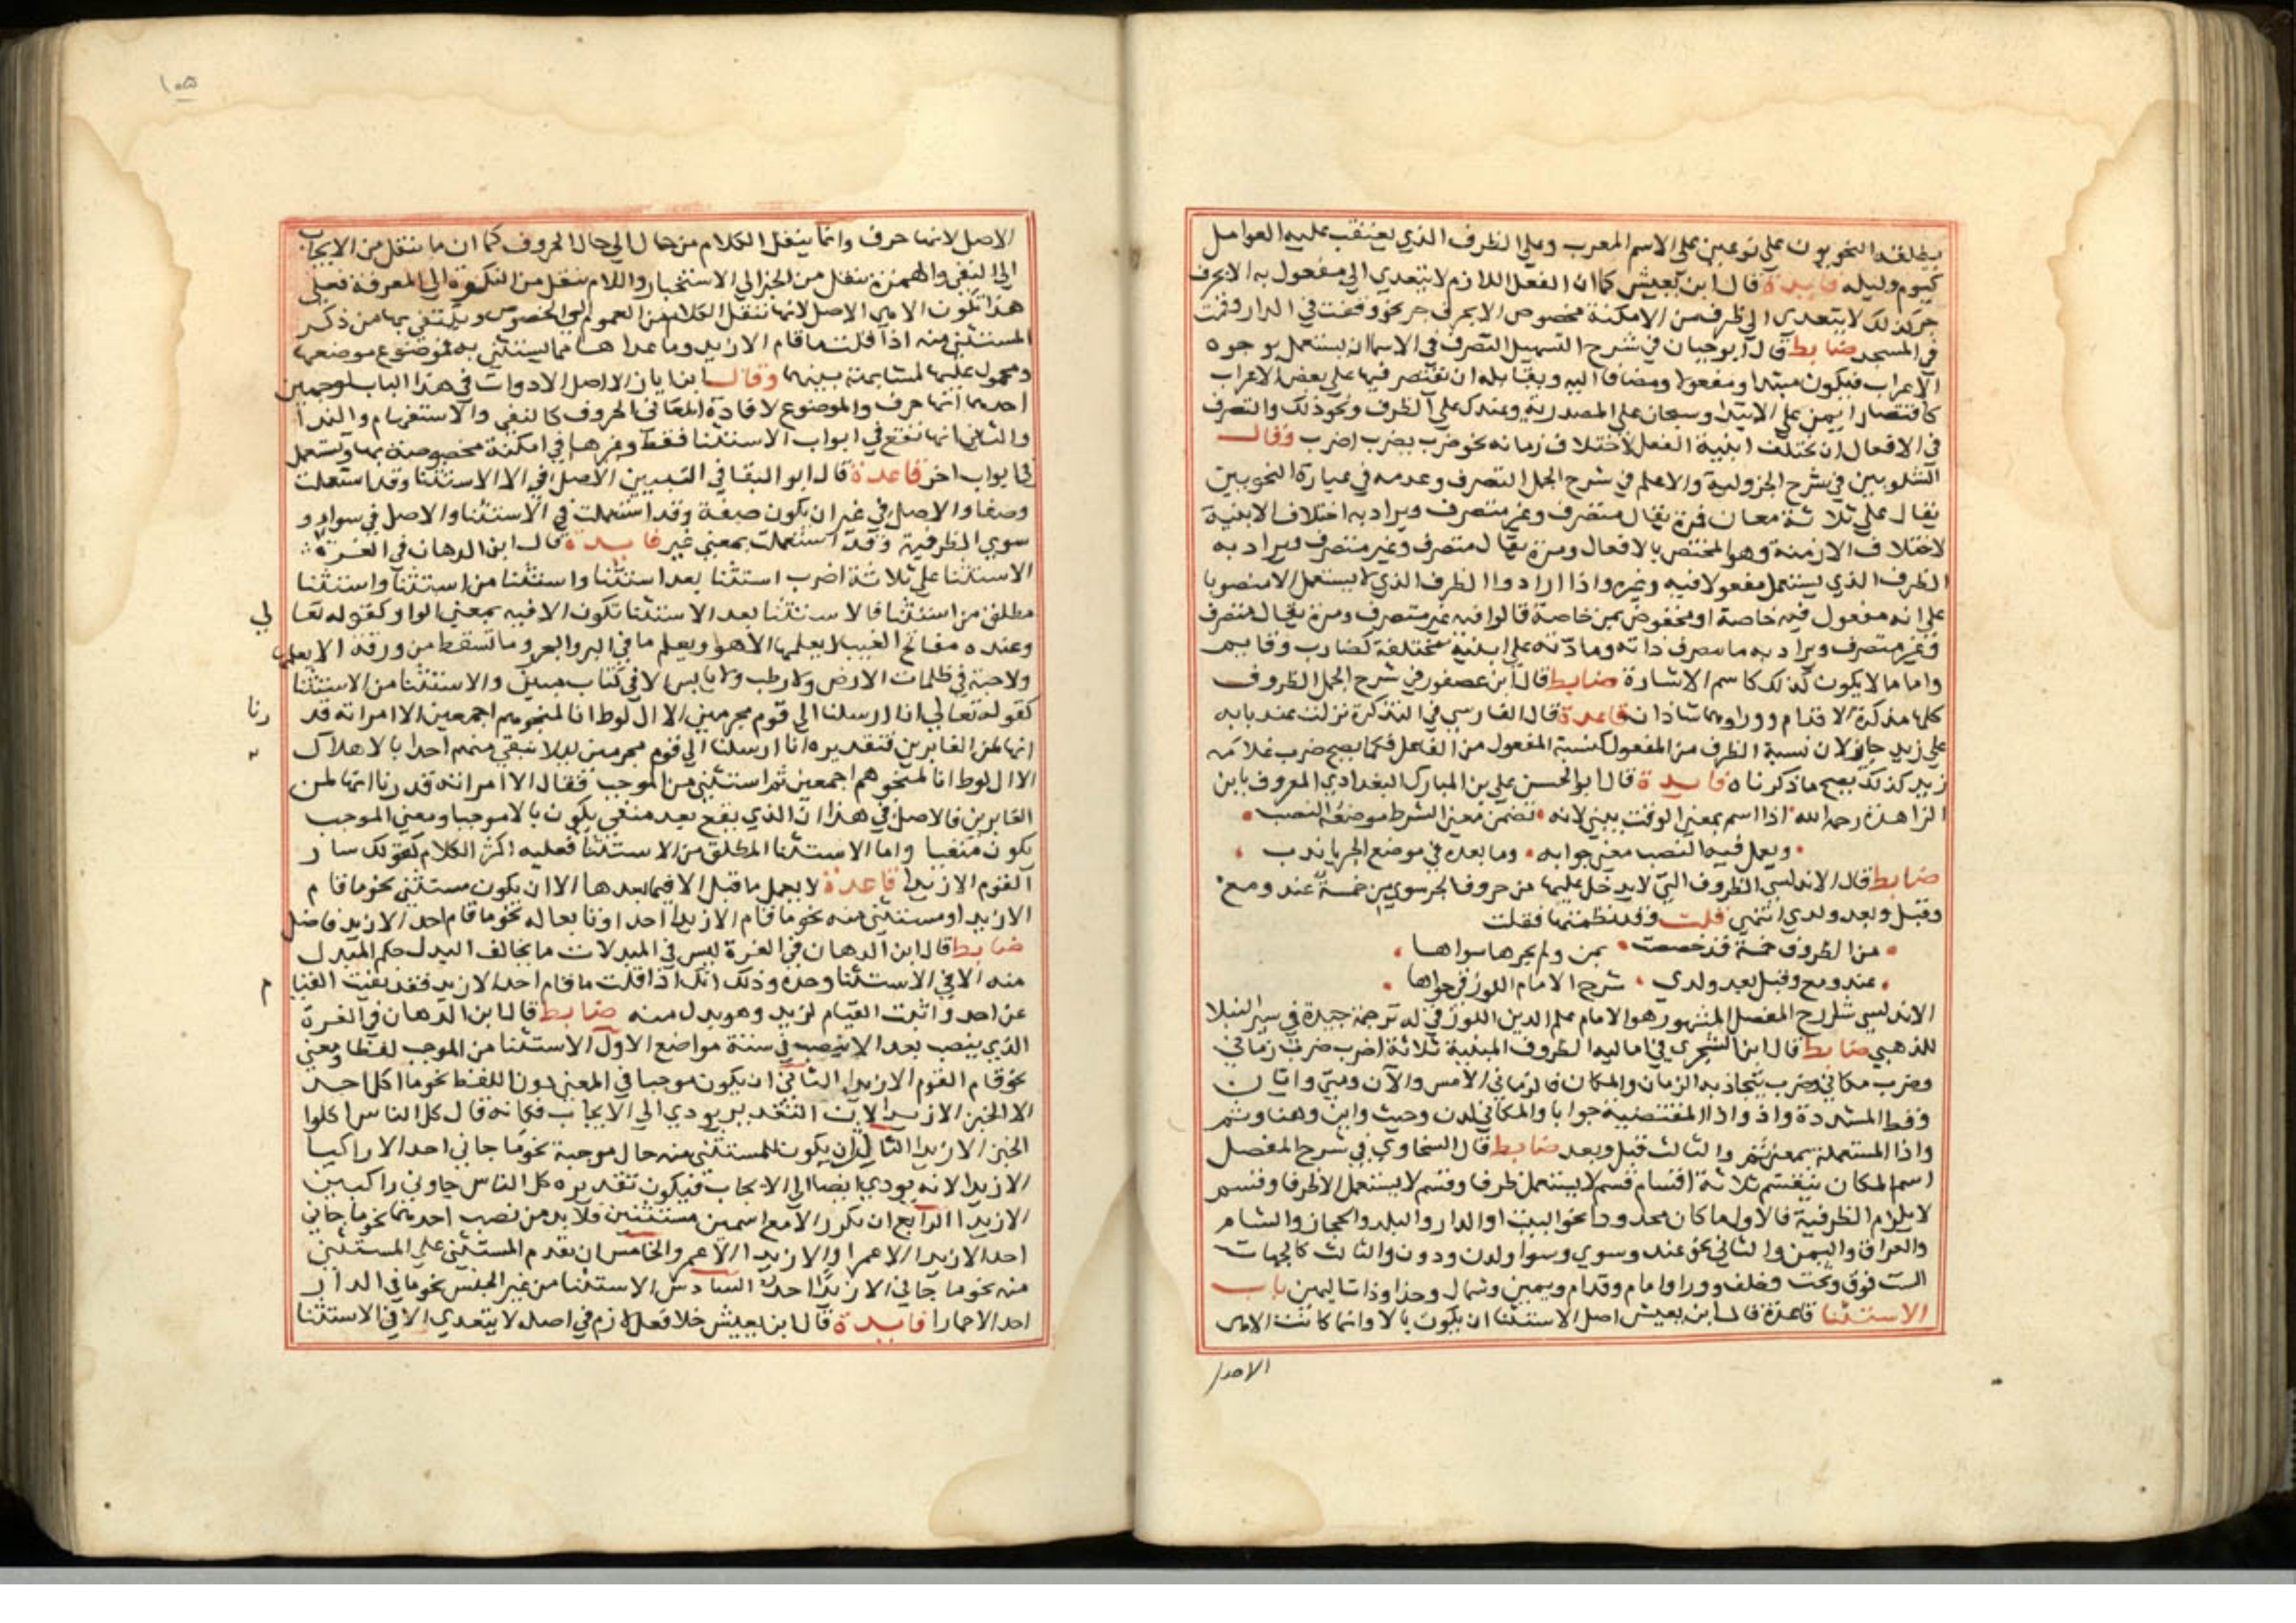 يطلقه النحويون على نوعين على الاسم المعرب وعلى الظرف الذي يعتقب عليه العوامل
كيوم وليله فايدة قال ابن يعيش كما ان الفعل اللازم لا يتعدي الي مفعول به الا بحرف
جر كذلك لا يتعدي الي ظرف من الامكنة مخصوص الا بحرف جر نحو وقفت في الدار وقمت
في المسجد ضابط قال ابو حيان في شرح التسهيل التصرف في الاسما ان يستعمل بوجوه
الاعراب فيكون مبتدا ومفعولا ومضافا اليه ويقابله ان تقتصر فيها على بعض الاعراب
كاقتصار ايمن على الابتدا وسبحان على المصدرية وعندك على الظرف ونحو ذلك والتصرف
في الافعال ان تختلف ابنية الفعل لاختلاف زمانه نحو ضرب يضرب اضرب وقال
الشلوبين في شرح الجزولية والاعلم في شرح الجمل التصرف وعدمه في عبارة النحويين
يقال على ثلاثة معان فمرة يقال متصرف وغير متصرف ويراد به اختلاف الابنية
لاختلاف الازمنة وهو المختص بالافعال ومرة يقال متصرف وغير متصرف ويراد به
الظرف الذي يستعمل مفعولا فيه وغيره واذا ارادوا الظرف الذي لا يستعمل الا منصوبا
على انه مفعول فيه خاصة او مخفوض بمن خاصة قالوا فيه غير متصرف ومرة يقال متصرف
وغير متصرف ويراد به ما تصرف ذاته ومادته على ابنية مختلفة كضارب وقايم
واما ما لا يكون كذلك كاسم الاشارة ضابط قال ابن عصفور في شرح الجمل الظروف
كلها مذكرة الا قدام ووراوهما شاذان قاعدة قال الفارسي في التذكرة نزلت عند بابه
على زيد جايز لان نسبة الظرف من المفعول كنسبة المفعول من الفاعل فكما يصح ضرب غلامه
زيد كذلك يصح ما ذكرناه فايدة قال ابو الحسن علي بن المبارك البغدادي المعروف بابن
الزاهدة رحمه الله اذا اسم بمعنى الوقت يبنى لانه تضمن معنى الشرط موضعه النصب
ويعمل فيه النصب معنى جوابه وما بعده في موضع الجر يا ندب
ضابط قال الاندلسي الظروف التي لا يدخل عليها من حروف الجر سوي من خمسة عند ومع
وقبل وبعد ولدي انتهي قلت وقد نظمتها فقلت
من الظروف خمسة قد خصصت بمن ولم يجرها سواها
عند ومع وقبل بعد ولدي شرح الامام اللورقي حواها
الاندلسي شارح المفصل المشهور هو الامام علم الدين اللورقي له ترجمة جيدة في سير النبلا
للذهبي ضابط قال ابن الشجري في اماليه الظروف المبنية ثلاثة اضرب ضرب زماني
وضرب مكاني وضرب تتجاذبه الزمان والمكان فالزماني الامس والآن ومتى وايان
وقط المشددة واذ واذا المقتضية جوابا والمكاني لدن وحيث واين وهنا وثم
واذا المستعملة بمعني ثم والثالث قبل وبعد ضابط قال السخاوي في شرح المفصل
اسم المكان ينقسم ثلاثة اقسام قسم لا يستعمل ظرفا وقسم لا يستعمل الا ظرفا وقسم
لا يلزم الظرفية فالاول ما كان محدودا نحو البيت او الدار والبلد والحجاز والشام
والعراق واليمن والثاني نحو عند وسوي وسوا ولدن ودون والثالث كالجهات
الست فوق وتحت وخلف وورا وامام وقدام ويمين وشمال وحذا وذات اليمين باب
الاستثنا قاعدة قال ابن يعيش اصل الاستثنا ان يكون بالا وانما كانت الا هي
الاصل
١٥٥
الاصل لانها حرف وانما ينقل الكلام من حال الي حال الحروف كما ان ما ينقل من الايجاب
الي النفي والهمزة تنقل من الخبر الي الاستخبار واللام تنقل من النكرة الي المعرفة فعلى
هذا تكون الا هي الاصل لانها تنقل الكلام من العموم الي الخصوص ويكتفي بها من ذكر
المستثنى منه اذا قلت ما قام الا زيد وما عداها مما يستثنى به فموضوع موضعها
ومحمول عليها لمشابهة بينهما وقال ابن اياز الا اصل الادوات في هذا الباب لوجهين
احدهما انها حرف والموضوع لافادة المعاني الحروف كالنفي والاستفهام والندا
والثاني انها تقع في ابواب الاستثنا فقط وغيرها في امكنة مخصوصة بها وتستعمل
في ابواب اخر قاعدة قال ابو البقا في التبيين الاصل في الا الاستثنا وقد استعملت
وصفا والاصل في غير ان يكون صفة وقد استعملت في الاستثنا والاصل في سواء و
سوي الظرفية وقد استعملت بمعني غير فايدة قال ابن الدهان في الغرة
الاستثنا على ثلاثة اضرب استثنا بعد استثنا واستثنا من استثنا واستثنا
مطلق من استثنا فالاستثنا بعد الاستثنا تكون الا فيه بمعني الواو كقوله تعالي
وعنده مفاتح الغيب لا يعلمها الا هو ويعلم ما في البر والبحر وما تسقط من ورقة الا يعلمها
ولا حبة في ظلمات الارض ولا رطب ولا يابس الا في كتاب مبين والاستثنا من الاستثنا
كقوله تعالي انا ارسلنا الي قوم مجرمين الا ال لوط انا لمنجوهم اجمعين الا امراته قدرنا
انها لمن الغابرين فتقديره انا ارسلنا الي قوم مجرمين لا نبقي منهم احدا بالاهلاك
الا ال لوط انا لمنجوهم اجمعين ثم استثني من الموجب فقال الا امراته قدرنا انها لمن
الغابرين فالاصل في هذا ان الذي يقع بعد منفي يكون بالا موجبا ومعني الموجب
يكون منفيا واما الاستثنا المطلق من الاستثنا فعليه اكثر الكلام كقولك سار
القوم الا زيدا قاعدة لا يعمل ما قبل الا فيما بعدها الا ان يكون مستثنى نحو ما قام
الا زيد او مستثنى منه نحو ما قام الا زيدا احد او تابعا له نحو ما قام احد الا زيد فاضل
ضابط قال ابن الدهان في الغرة ليس في المبدلات ما يخالف البدل حكم المبدل
منه الا في الاستثنا وحده وذلك انك اذا قلت ما قام احد الا زيد فقد نفيت القيام
عن احد واثبت القيام لزيد وهو بدل منه ضابط قال ابن الدهان في الغرة
الذي ينصب بعد الا ينصب في ستة مواضع الاول الاستثنا من الموجب لفظا ومعني
نحو قام القوم الا زيدا الثاني ان يكون موجبا في المعني دون اللفظ نحو ما اكل احد
الا الخبز الا زيدا لان التقدير يودي الي الايجاب فكانه قال كل الناس اكلوا
الخبز الا زيدا الثالث ان يكون للمستثنى منه حال موجبة نحو ما جاني احد الا راكبا
الا زيدا لانه يودي ايضا الي الايجاب فيكون تقديره كل الناس جاوني راكبين
الا زيدا الرابع ان تكرر الا مع اسمين مستثنيين فلا بد من نصب احدهما نحو ما جاني
احد الا زيدا الا عمرا والا زيدا الا عمرو والخامس ان تقدم المستثنى على المستثنى
منه نحو ما جاني الا زيدا احد السادس الاستثنا من غير الجنس نحو ما في الدار
احد الا حمارا فايدة قال ابن يعيش خلا فعل لازم في اصله لا يتعدي الا في الاستثنا